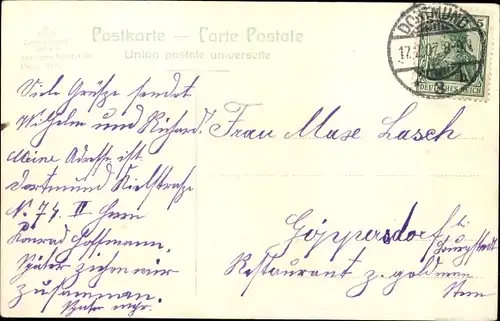 Postkarte — Carte Postale
Union postale universelle
DORTMUND
17. 07. 8-9
DEUTSCHES REICH
5
Viele Grüße sendet
Wilhelm und Richard.
Meine Adresse ist
Dortmund Kielstraße
No. 74 II Herrn
Konrad Hoffmann,
später ziehn wir
zusammen.
Später mehr.
Frau Lasch
Göppersdorf b.
Burgstedt
Restaurant z. goldnen
Stern